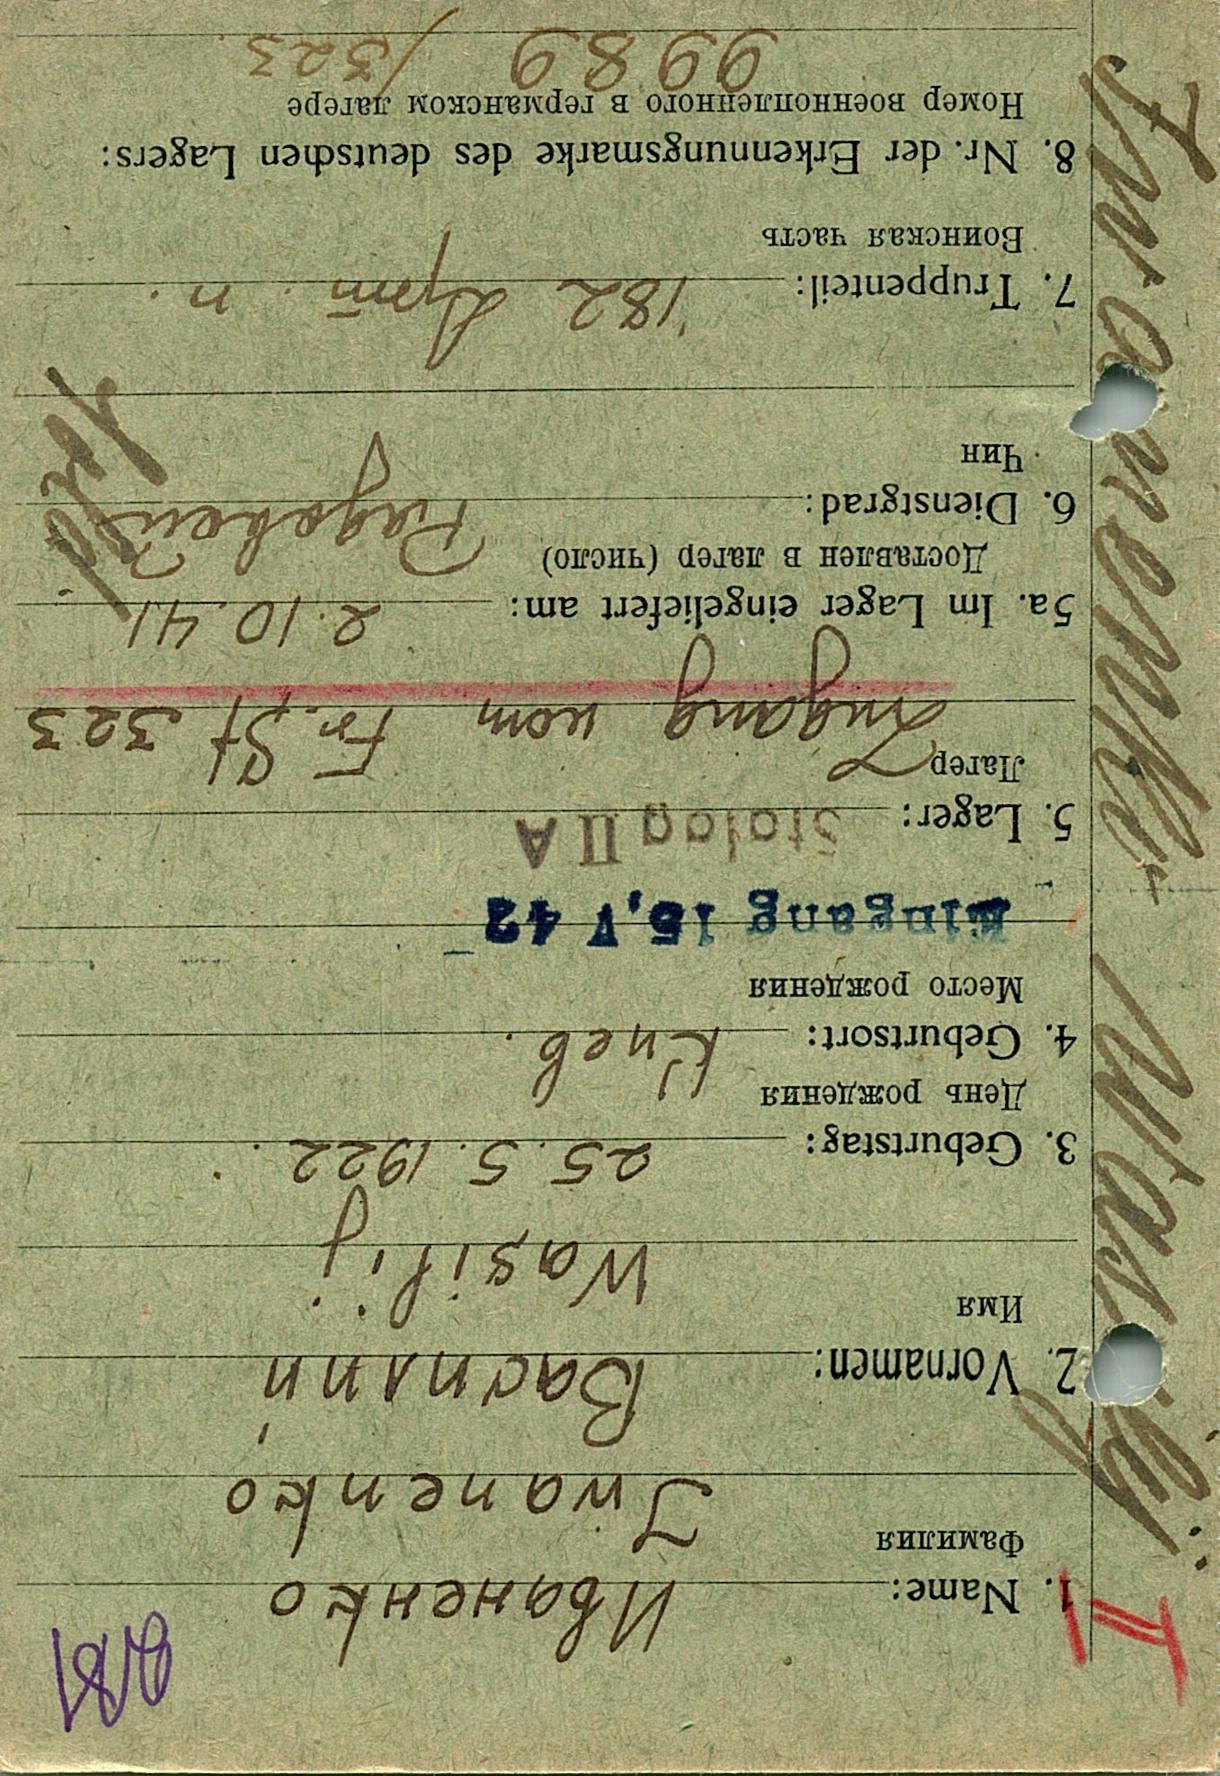 1. Name: Иваненко
Фамилия
Iwanenko
2. Vornamen: Василий
Имя
Wasilij
3. Geburtstag: 25.5.1922.
День рождения
4. Geburtsort: Киев.
Место рождения
Eingang 15. V 42
5. Lager: Stalag II A
Лагер
Zugang vom Fr. St 323
5a. Im Lager eingeliefert am: 2.10.41
Доставлен в лагер (число)
6. Dienstgrad: Рядовой
Чин
7. Truppenteil: 182 Арт. п.
Воинская часть
8. Nr. der Erkennungsmarke des deutschen Lagers:
Номер военнопленного в германском лагере
9989 /323.
Iwanenko Wasilij
II